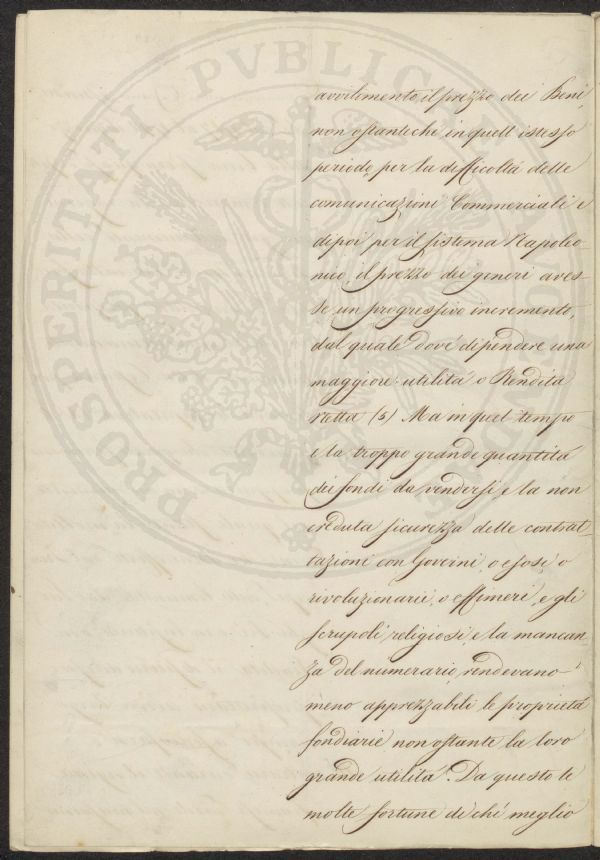 avvilimento il prezzo dei Beni,
non ostanteche in quell' istesso
periodo, per la difficoltá delle
comunicazioni Commerciali e
dipoi per il sistema Napoleo-
nico, il prezzo dei generi aves-
se un progressivo incremento,
dal quale dové dipendere una
maggiore utilitá o Rendita
retta (5) Ma in quel tempo
e la troppo grande quantitá
dei fondi da vendersi, e la non
creduta sicurezza delle contrat-
tazioni con Governi, o esosi o
rivoluzionarii, o effimeri, e gli
scrupoli religiosi, e la mancan-
za del numerario, rendevano
meno apprezzabili le proprietá
fondiarie non ostante la loro
grande utilitá. Da questo le
molte fortune di chi meglio
PROSPERITATI PVBLICAE